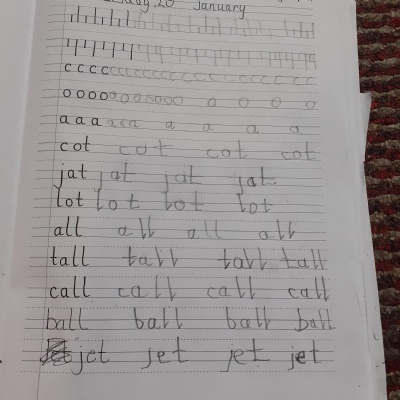 20 January
c c c c c c c c c c c c c c c c c
o o o o o o o o o o o o o o o
a a a a a a a a a a
cot cot cot cot
jat jat jat jat
lot lot lot lot
all all all all
tall tall tall tall
call call call call
ball ball ball ball
jet jet jet jet